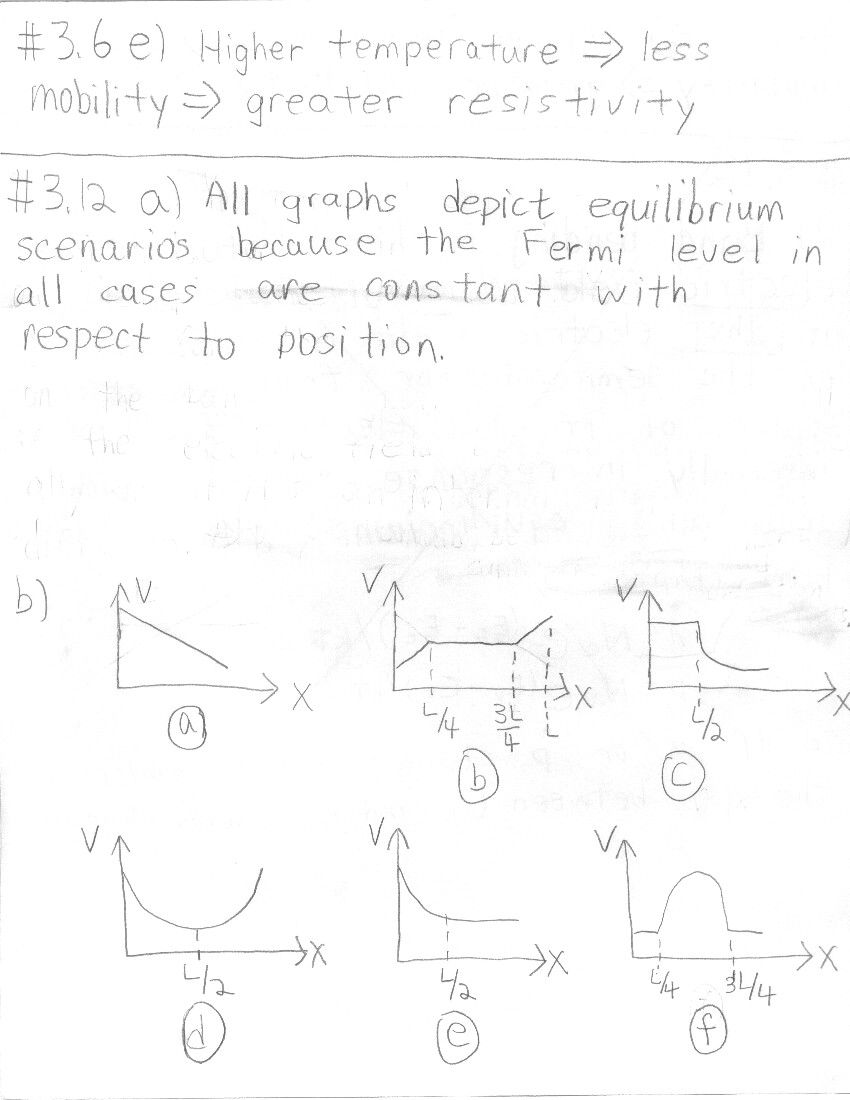 #3.6 e) Higher temperature ⇒ less
mobility ⇒ greater resistivity
#3.12 a) All graphs depict equilibrium
scenarios because the Fermi level in
all cases are constant with
respect to position.
b)
V
X
a
V
X
L/4
3L/4
L
b
V
X
L/2
c
V
X
L/2
d
V
X
L/2
e
V
X
L/4
3L/4
f